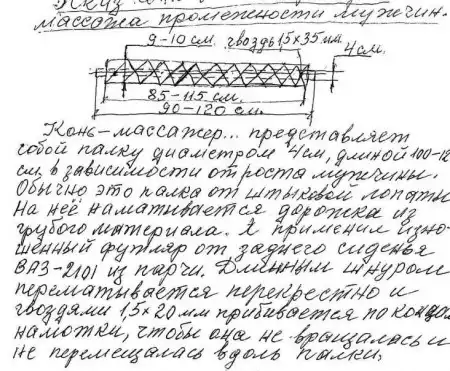 массажа промежности мужчин.
9-10 см. гвоздь 1,5х35 мм.
4 см.
85-115 см.
90-120 см.
Конь-массажер... представляет
собой палку диаметром 4см, длиной 100-12
см, в зависимости от роста мужчины.
Обычно это палка от штыковой лопаты
На неё наматывается дорожка из
грубого материала. Я применил изно-
шенный футляр от заднего сиденья
ВАЗ-2101 из парчи. Длинным шнуром
перематывается перекрестно и
гвоздями 1,5х20 мм прибивается по концам
намотки, чтобы она не вращалась и
не перемещалась вдоль палки.